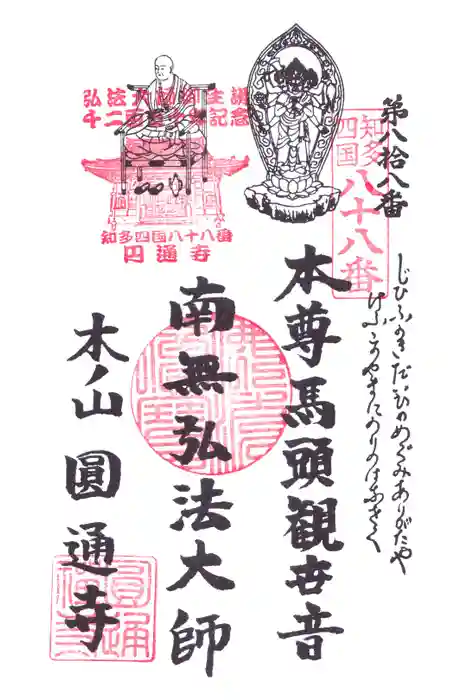 第八拾八番
知多
四国
八十八番
じひふかきだいひのめぐみありがたや
本尊馬頭観世音
南無弘法大師
弘法大師御生誕
千二百五十年記念
知多四国八十八番
円通寺
木ノ山 圓通寺
圓通